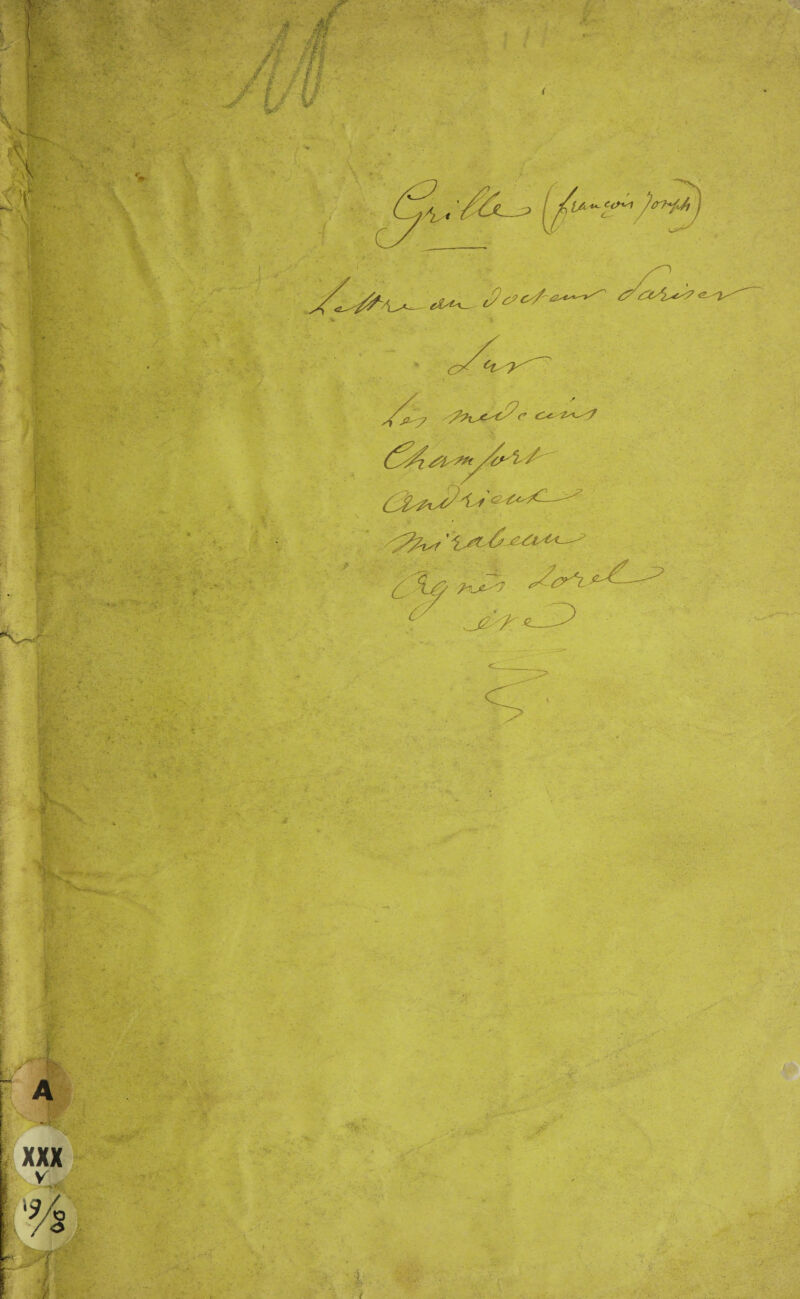 Grille (françois Joseph)
Lettre au Docteur Pariser
Sur
Les medecins
Chamfort
Andrieux
Mirabeau
Agnès Sorel
A
XXX
V